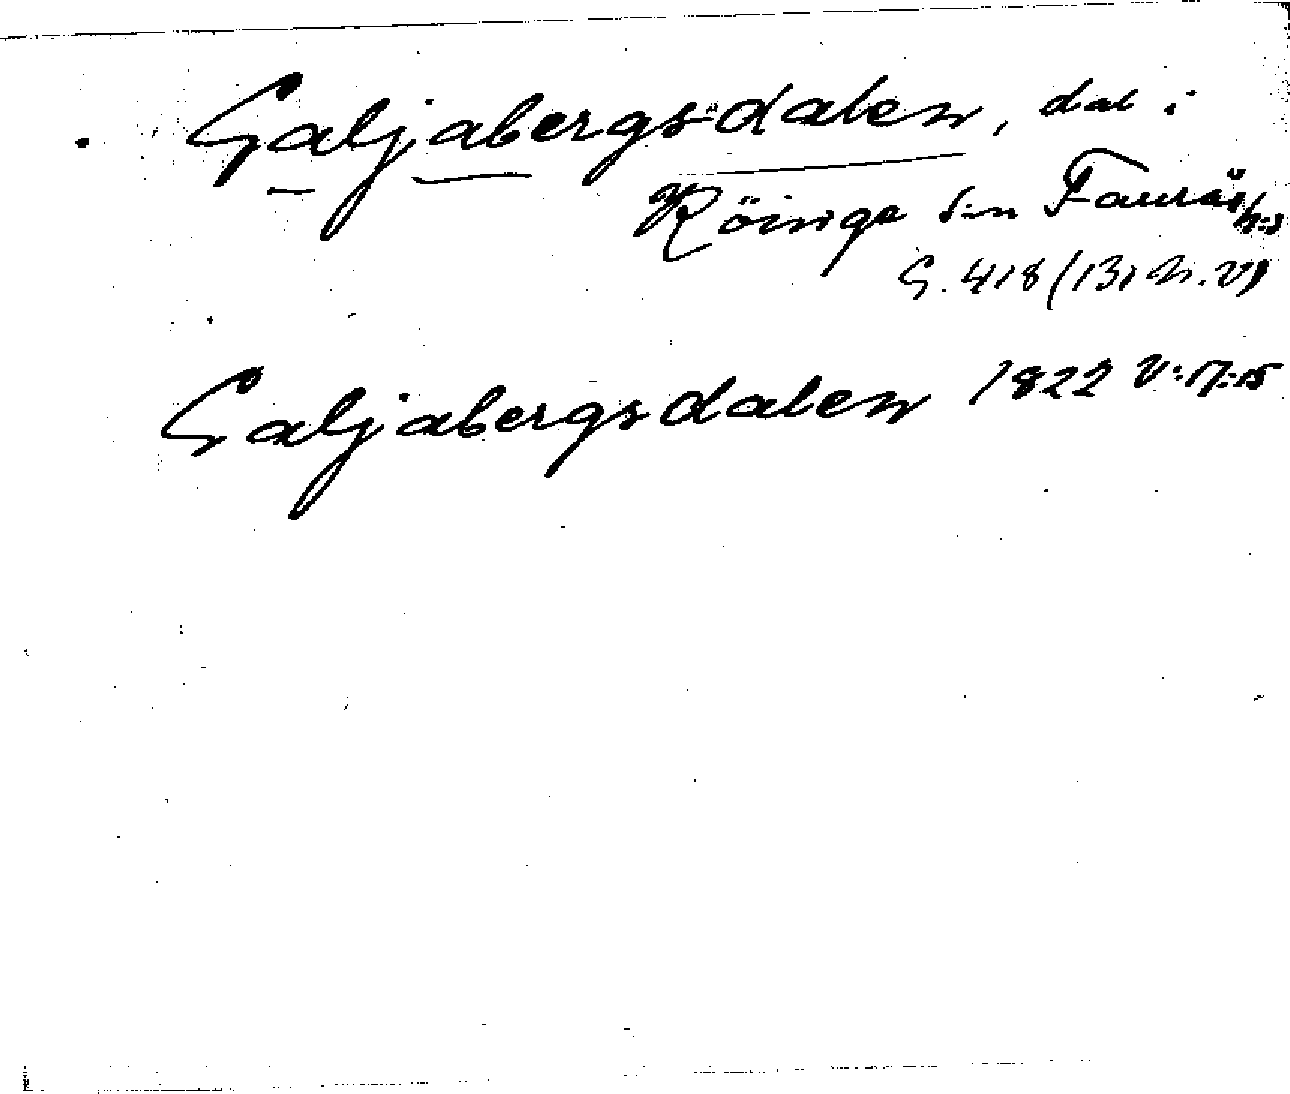 Galjabergsdalen, dal i
Röinge Sn Faurås h:d
G. 418 (131 N. V)
Galjabergsdalen 1822 V:17:15